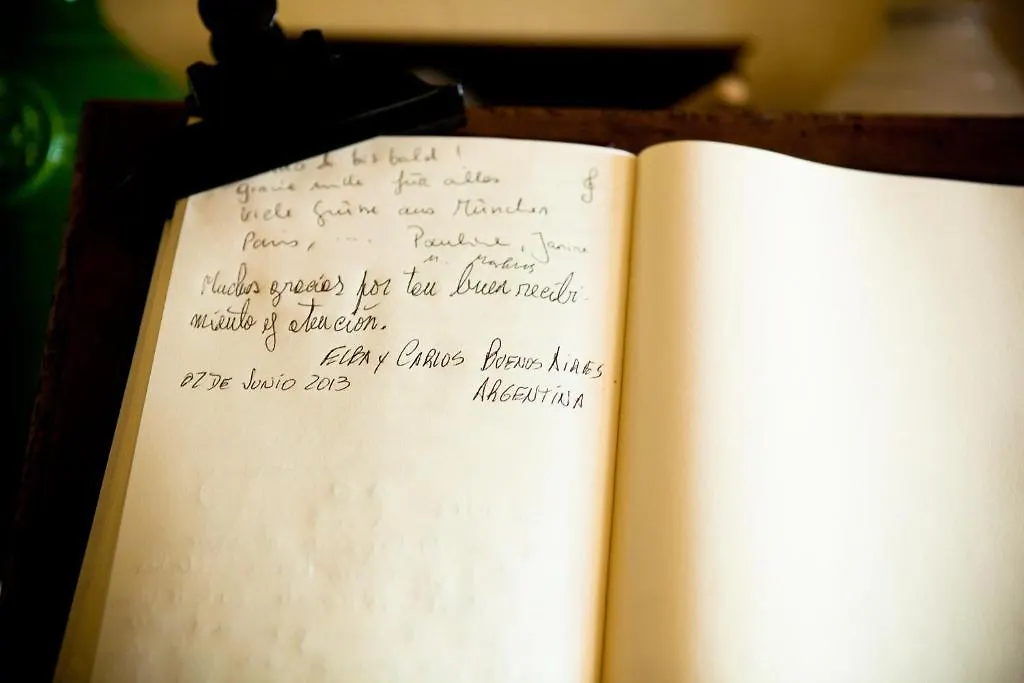 bis bald!
grazie mile für alles
viele Grüße aus München
Paris, ... Pauline, Janine
Markus
Muchas gracias por tan buen recibi-
miento y atención.
ELBA y CARLOS BUENOS AIRES
07 DE JUNIO 2013
ARGENTINA